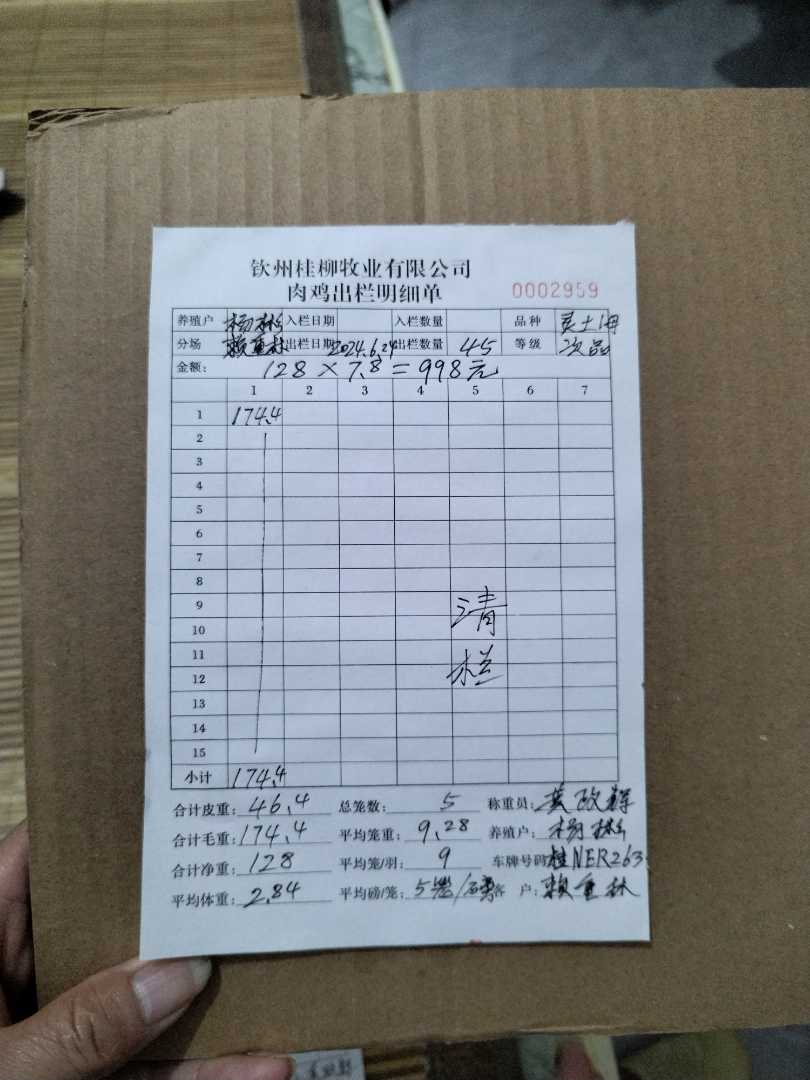 钦州桂柳牧业有限公司
肉鸡出栏明细单 0002959
养殖户 杨彬 入栏日期 入栏数量 品种 灵土
分场 赖重林 出栏日期 2024.6.24 出栏数量 45 等级 次品
金额: 128×7.8=998元
1 2 3 4 5 6 7
1 174.4
2
3
4
5
6
7
8
9 清
10
11
12 栏
13
14
15
小计 174.4
合计皮重: 46.4 总笼数: 5 称重员: 黄政辉
合计毛重: 174.4 平均笼重: 9.28 养殖户: 杨彬
合计净重: 128 平均笼/羽: 9 车牌号码 桂NER263
平均体重: 2.84 平均磅/笼: 5笼/磅 客户: 赖重林